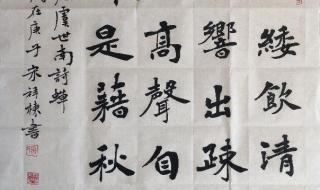 緌飲清
響出疎
高聲自
是藉秋
虞世南詩蟬
在庚子宋祥棟書